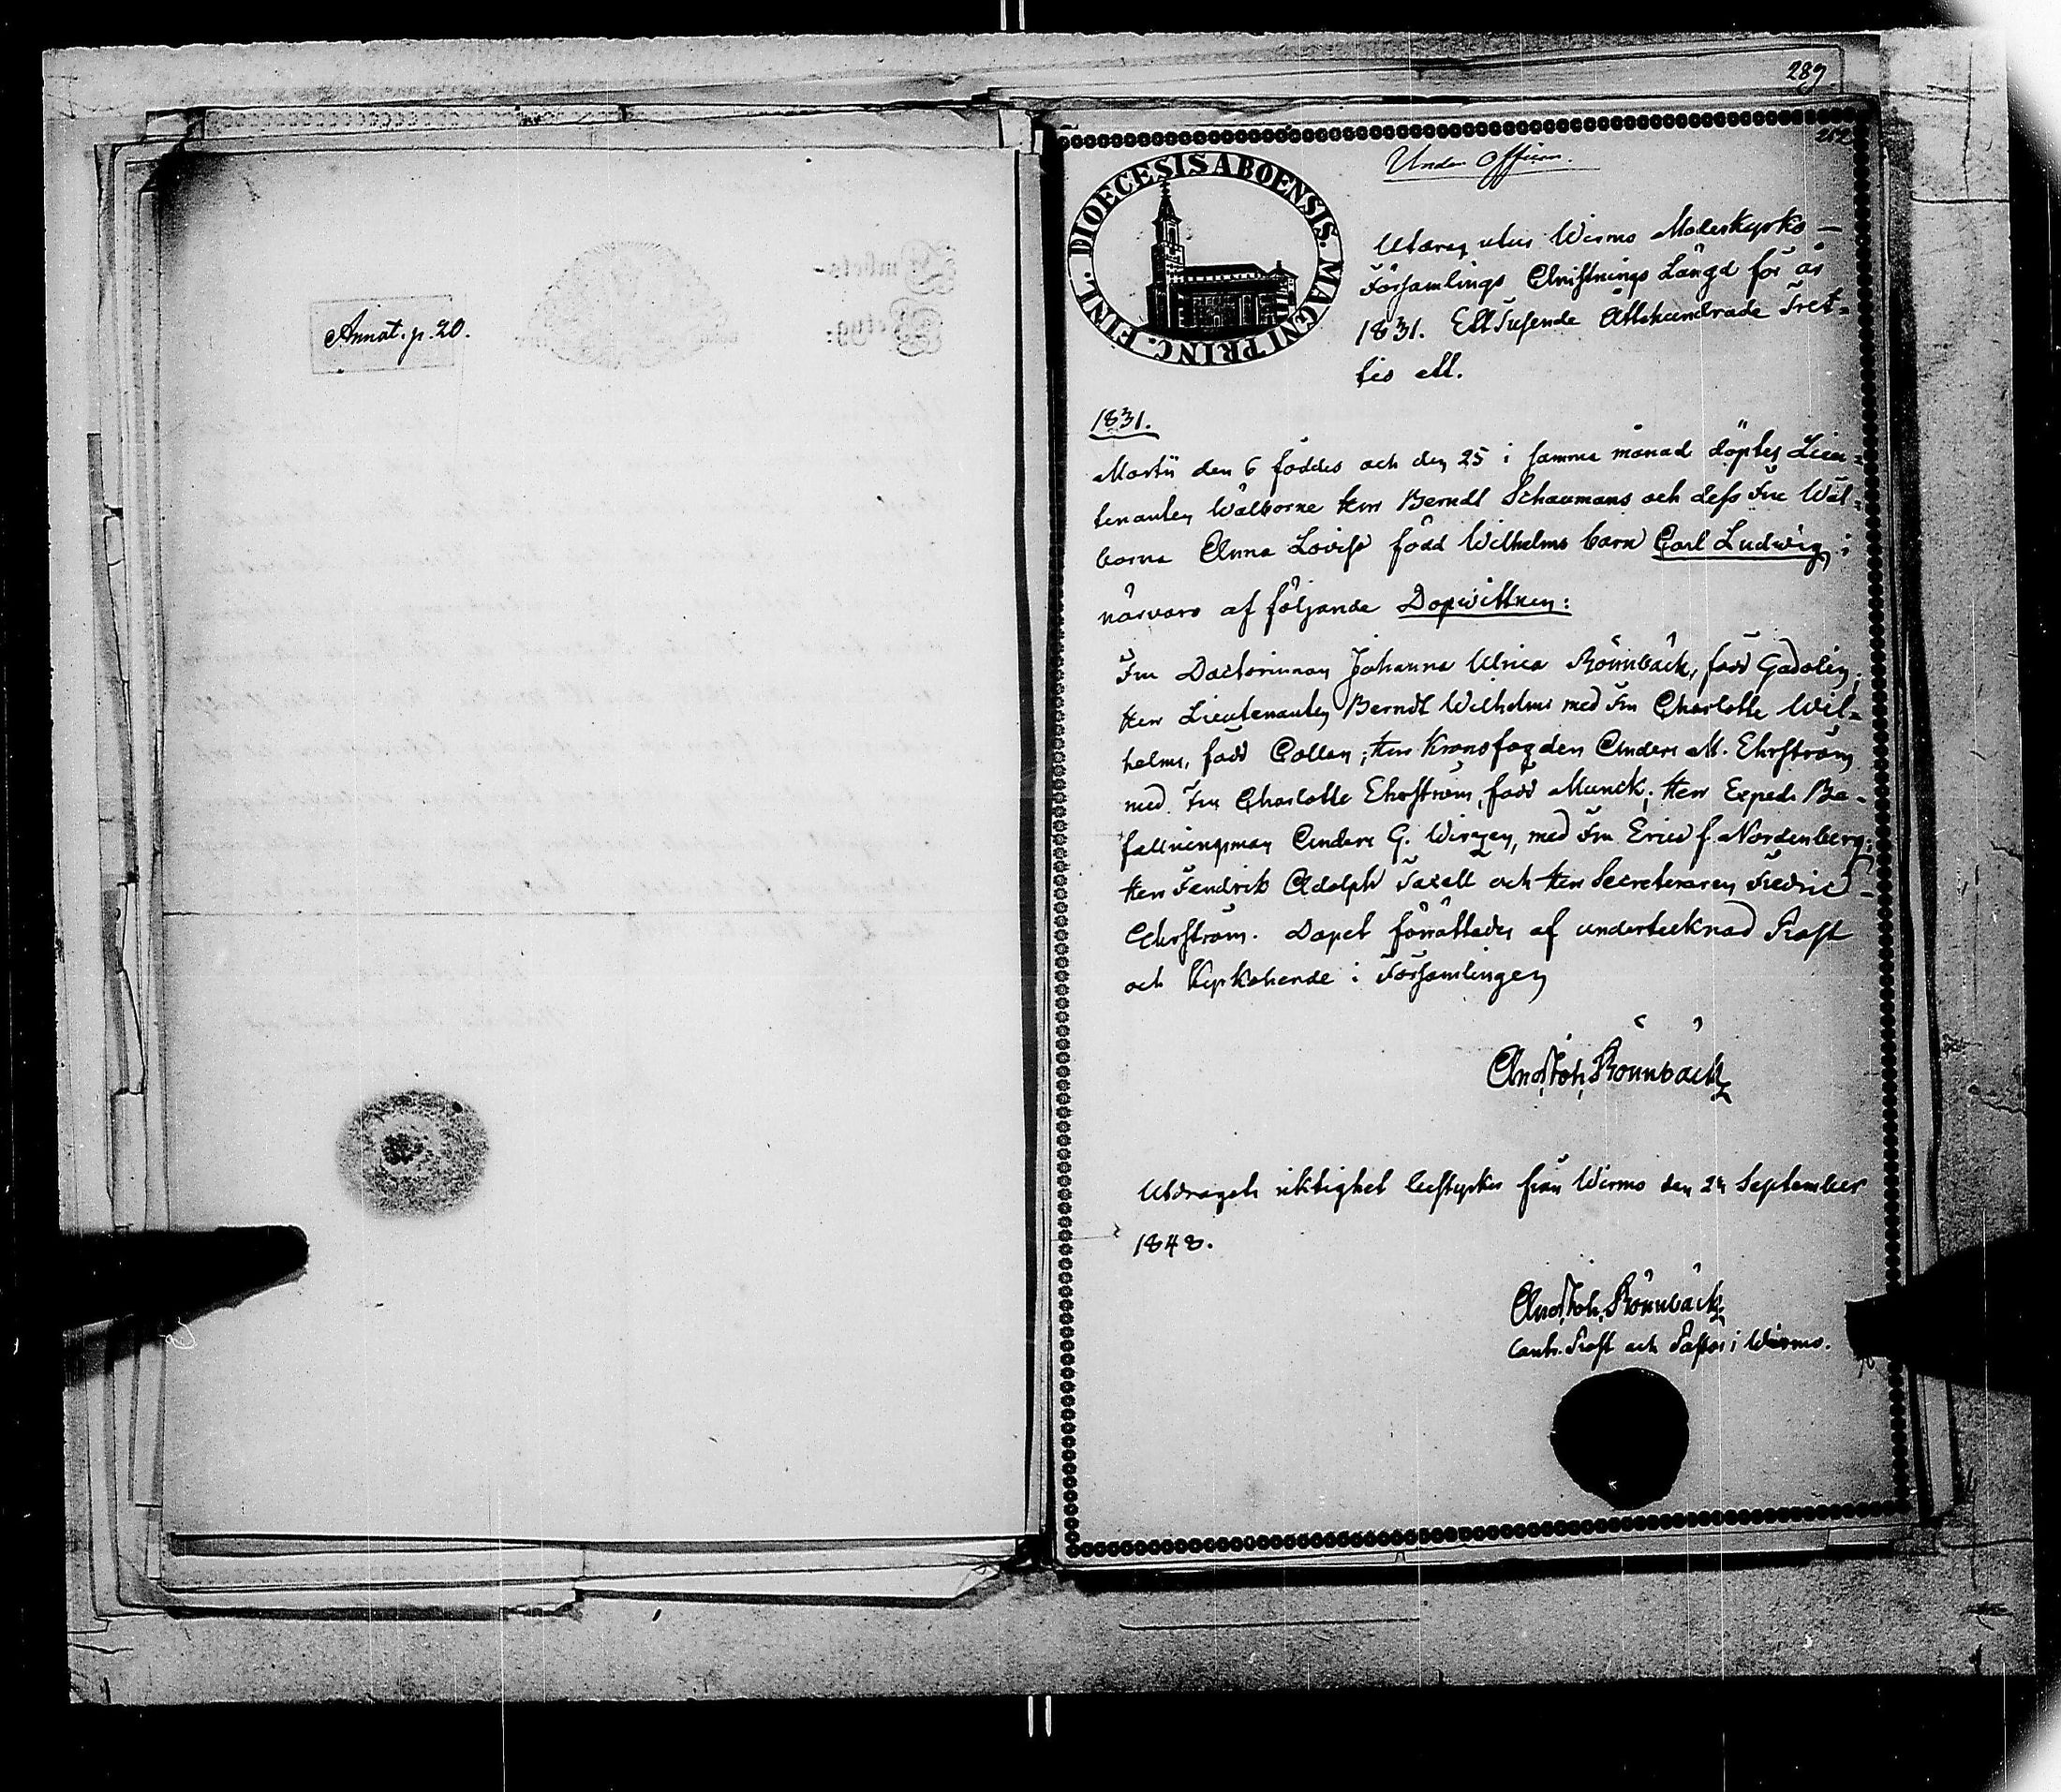 Annot. p. 20.
289
282
DIOECESIS ABOENSIS. MAGNI PRINC. FINL.
Under Officin.
Utdrag utur Wirmo Moderkyrko-
Församlings Christnings Längd för år
1831. Ett Tusende Åttahundrade Tret-
tio ett.
1831.
Martii den 6 föddes och den 25 i samma månad döptes Lieu-
tenanten Wälborne Herr Berndt Schaumans och dess Fru Wäl-
borna Anna Lovisa född Wilhelms barn Carl Ludwig, i
närvaro af följande Dopwittnen:
Fru Doctorinnan Johanna Ulrica Rönnbäck, född Gadolin;
Herr Lieutenanten Berndt Wilhelms med Fru Charlotte Wil-
helms, född Collen; Herr Kronofogden Anders M. Ehrström
med Fru Charlotte Ehrström, född Munck; Herr Exped. Be-
fallningsman Anders G. Wirzen, med Fru Erica f. Nordenberg;
Herr Fendrik Adolph Taxell och Herr Secreteraren Fredric
Ehrström. Dopet förrättades af undertecknad Prost
och Kyrkoherde i Församlingen
And. Joh. Rönnbäck
Utdragets riktighet bestyrker från Wirmo den 24 September
1848.
And. Joh. Rönnbäck
Contr. Prost och Pastor i Wirmo.